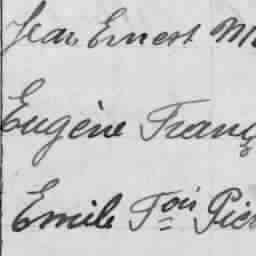 Jean Ernest M
Eugène Franç
Emile Fois Pier